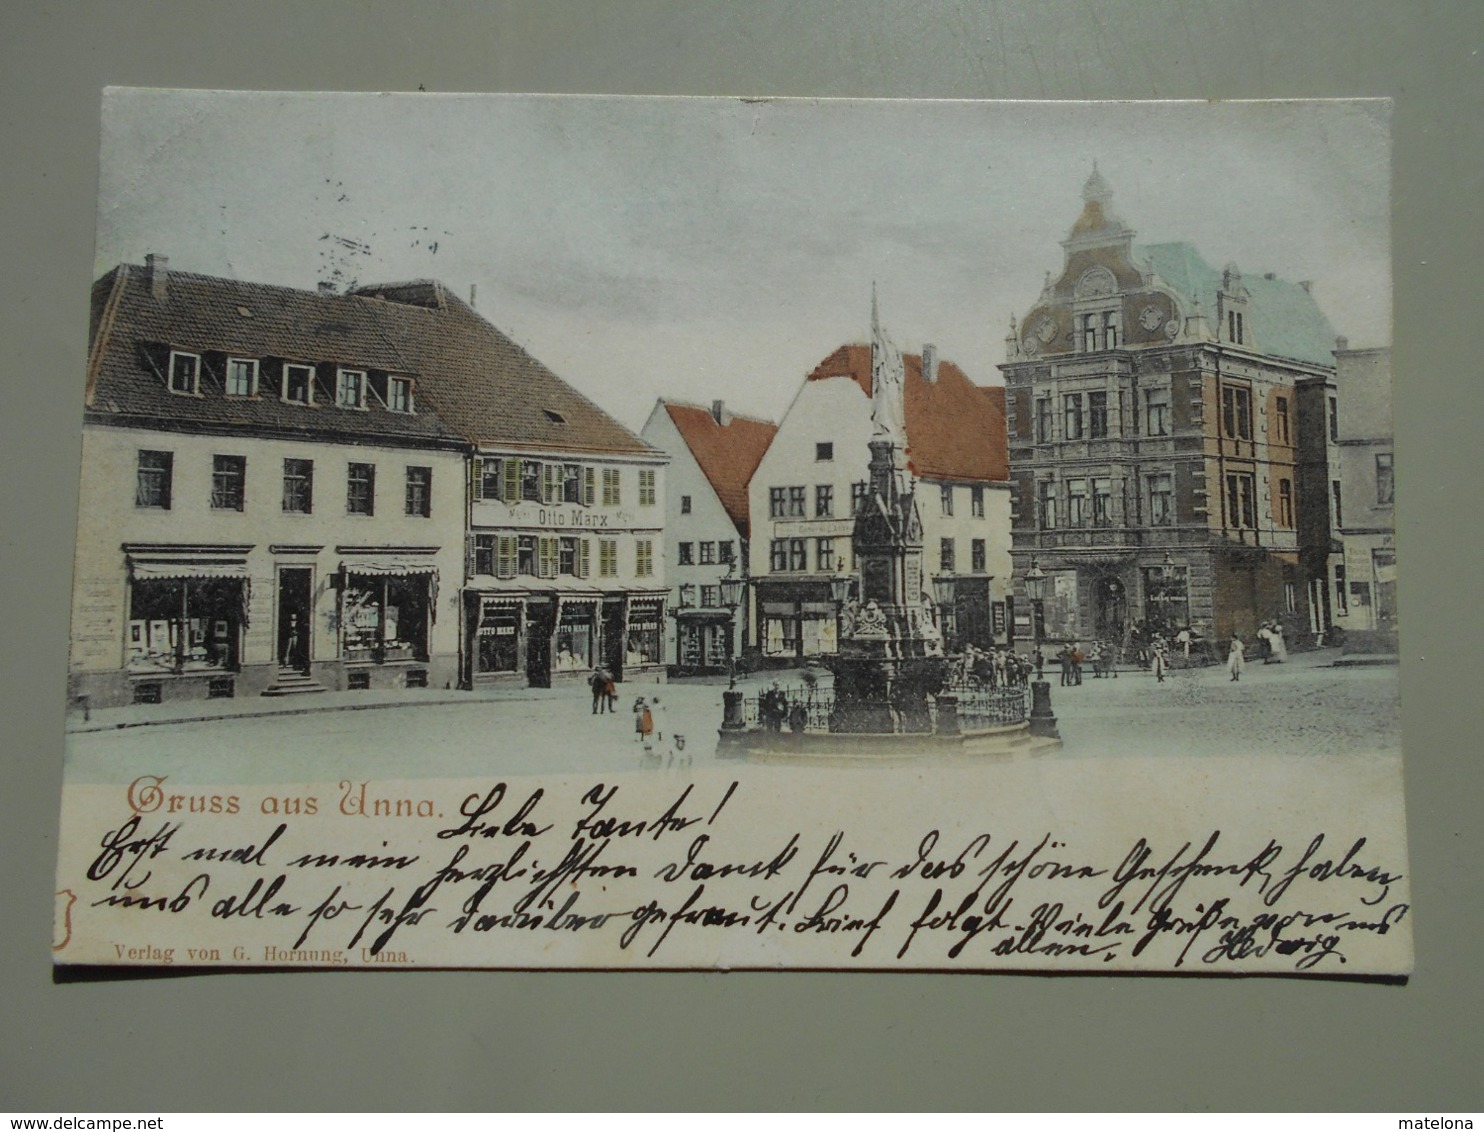 Otto Marx
OTTO MARX
OTTO MARX
Gruss aus Unna.
Liebe Tante!
Erst mal mein herzlichsten Danck für das schöne Geschenk, haben
uns alle so sehr darüber gefreut. Brief folgt. Viele Grüße von uns
allen. Hedwig.
Verlag von G. Hornung, Unna.
https://www.delcampe.net
matelona